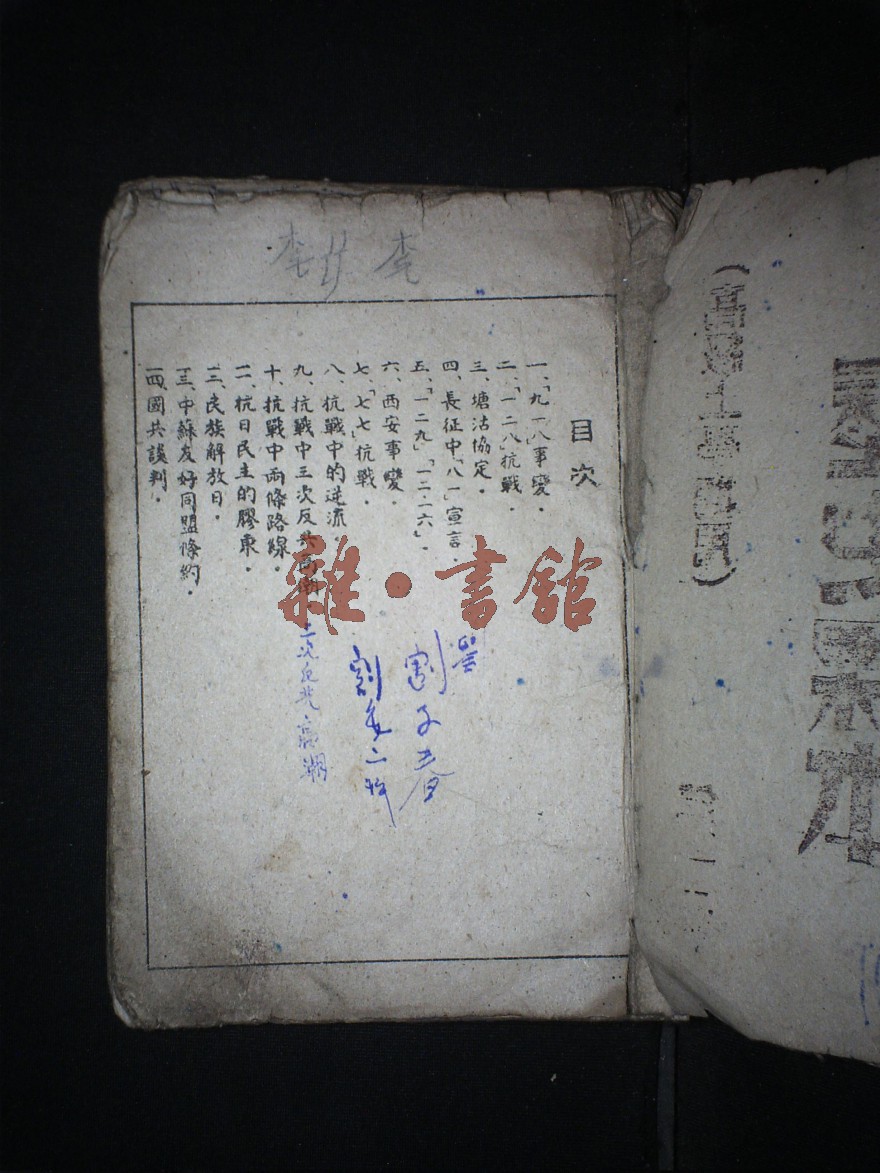 （高級上學期用）
歷史課本
目次
一、「九一八」事變．
二、「一二八」抗戰．
三、塘沽協定．
四、長征中「八一」宣言．
五、「一二九」「一二·一六」．
六、西安事變．
七、「七七」抗戰．
八、抗戰中的逆流
九、抗戰中三次反共高潮
十、抗戰中兩條路線．
一一、抗日民主的膠東．
一二、民族解放日．
一三、中蘇友好同盟條約．
一四、國共談判．
李 李
雜·書館
劉子春
三次反共高潮